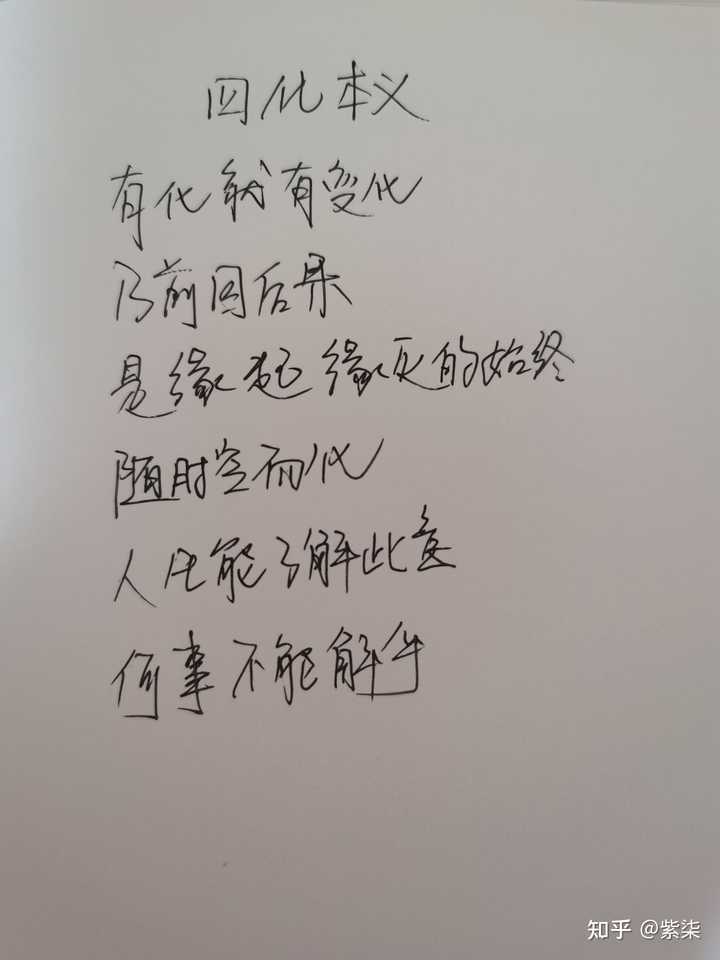 四化本义
有化就有变化
乃前因后果
是缘起缘灭的始终
随时空而化
人生能了解此意
何事不能解乎
知乎 @紫柒